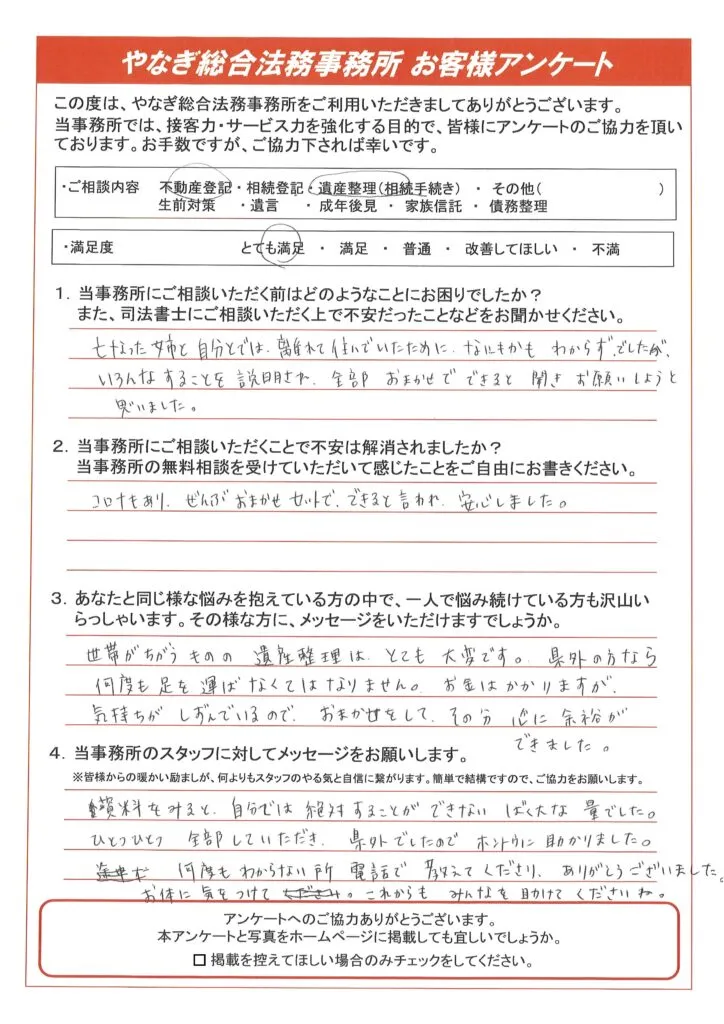 やなぎ総合法務事務所 お客様アンケート
この度は、やなぎ総合法務事務所をご利用いただきましてありがとうございます。
当事務所では、接客力・サービス力を強化する目的で、皆様にアンケートのご協力を頂い
ております。お手数ですが、ご協力下されば幸いです。
・ご相談内容 不動産登記・相続登記・遺産整理(相続手続き) ・ その他( )
生前対策 ・遺言 ・成年後見 ・家族信託 ・債務整理
・満足度 とても満足 ・ 満足 ・ 普通 ・ 改善してほしい ・ 不満
1. 当事務所にご相談いただく前はどのようなことにお困りでしたか?
また、司法書士にご相談いただく上で不安だったことなどをお聞かせください。
亡なった姉と自分とでは、離れて住んでいたために、なにもかも わからず、でしたが、
いろんなすることを説明され、全部 おまかせで できると 聞き お願いしようと
思いました。
2. 当事務所にご相談いただくことで不安は解消されましたか?
当事務所の無料相談を受けていただいて感じたことをご自由にお書きください。
コロナもあり、ぜんぶおまかせセットで、できると言われ、安心しました。
3. あなたと同じ様な悩みを抱えている方の中で、一人で悩み続けている方も沢山い
らっしゃいます。その様な方に、メッセージをいただけますでしょうか。
世帯がちがうものの 遺産整理は、とても 大変です。県外の方なら
何度も足を運ばなくてはなりません。お金はかかりますが、
気持ちが しずんでいるので、おまかせをして、その分 心に 余裕が
できました。
4. 当事務所のスタッフに対してメッセージをお願いします。
※皆様からの暖かい励ましが、何よりもスタッフのやる気と自信に繋がります。簡単で結構ですので、ご協力をお願いします。
資料をみると、自分では 絶対することが できない ばく大な 量でした。
ひとつひとつ 全部していただき、県外でしたので ホントウに 助かりました。
何度もわからない所 電話で 教えてくださり、ありがとうございました。
お体に気をつけて。これからも みんなを 助けて くださいね。
アンケートへのご協力ありがとうございます。
本アンケートと写真をホームページに掲載しても宜しいでしょうか。
□ 掲載を控えてほしい場合のみチェックをしてください。